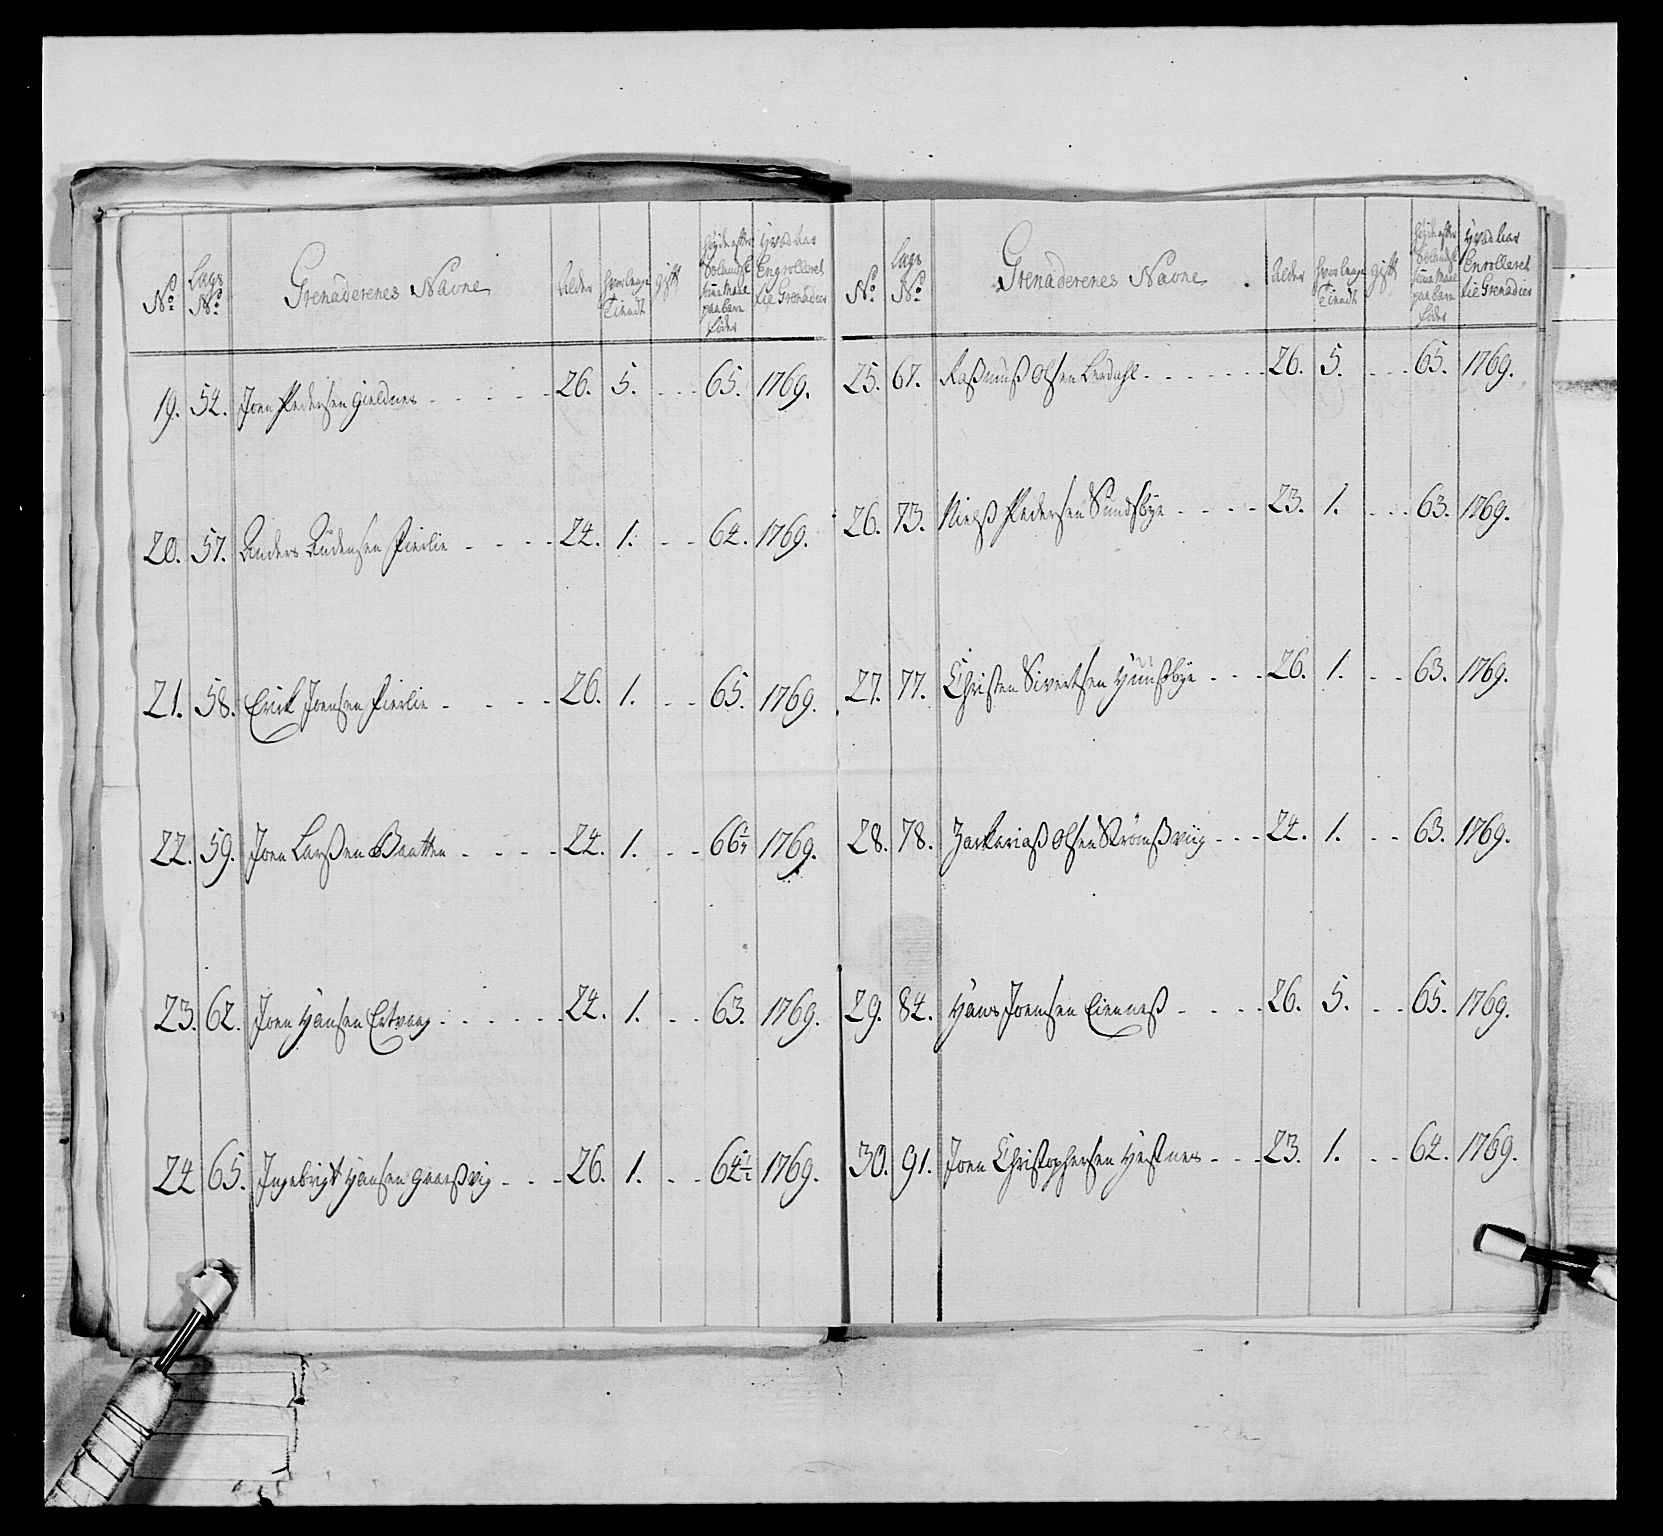 No
Lags No
Grenaderenes Navne
Alder
hvorlænge Tiendt
gift
Høyde efter
paa bare
föder
Hvad Aar
Engrolleret
til Grenadier
19. 54. Joen Pedersen Gieldnes - - - - - 26. 5. - - - 65. 1769.
20. 57. Anders Audensen Pierlie - - - - 24. 1. - - 64. 1769.
21. 58. Erick Joensen Pierlie - - - - 26. 1. - - 65. 1769.
22. 59. Joen Larßen Baatten - - - - 24. 1. - - 66½ 1769.
23. 62. Joen Hansen Ertvaag - - - - - 24. 1. - - 63. 1769.
24 65. Ingebrigt Hansen Gaarßvig - - - 26. 1. - - 64½ 1769.
No
Lags No
Grenaderenes Navne
Alder
hvorlænge Tiendt
gift
Høyde efter
paa bare
föder
Hvad Aar
Enrolleret
til Grenadier
25. 67. Raßmuß Olsen Lerdahl - - - - - - 26. 5. - - - 65. 1769.
26. 73. Nielß Pedersen Sundsbye - - - - 23. 1. - - - 63. 1769.
27. 77. Christen Sivertsen Huußbye - - - 26. 1. - - 63. 1769.
28. 78. Zackariaß Olsen Strömßviig - - - 24. 1. - - 63. 1769.
29. 84. Hans Joensen Eienneß - - - - 26. 5. - - 65. 1769.
30. 91. Joen Christophersen Hestnes - - - 23. 1. - - 64. 1769.